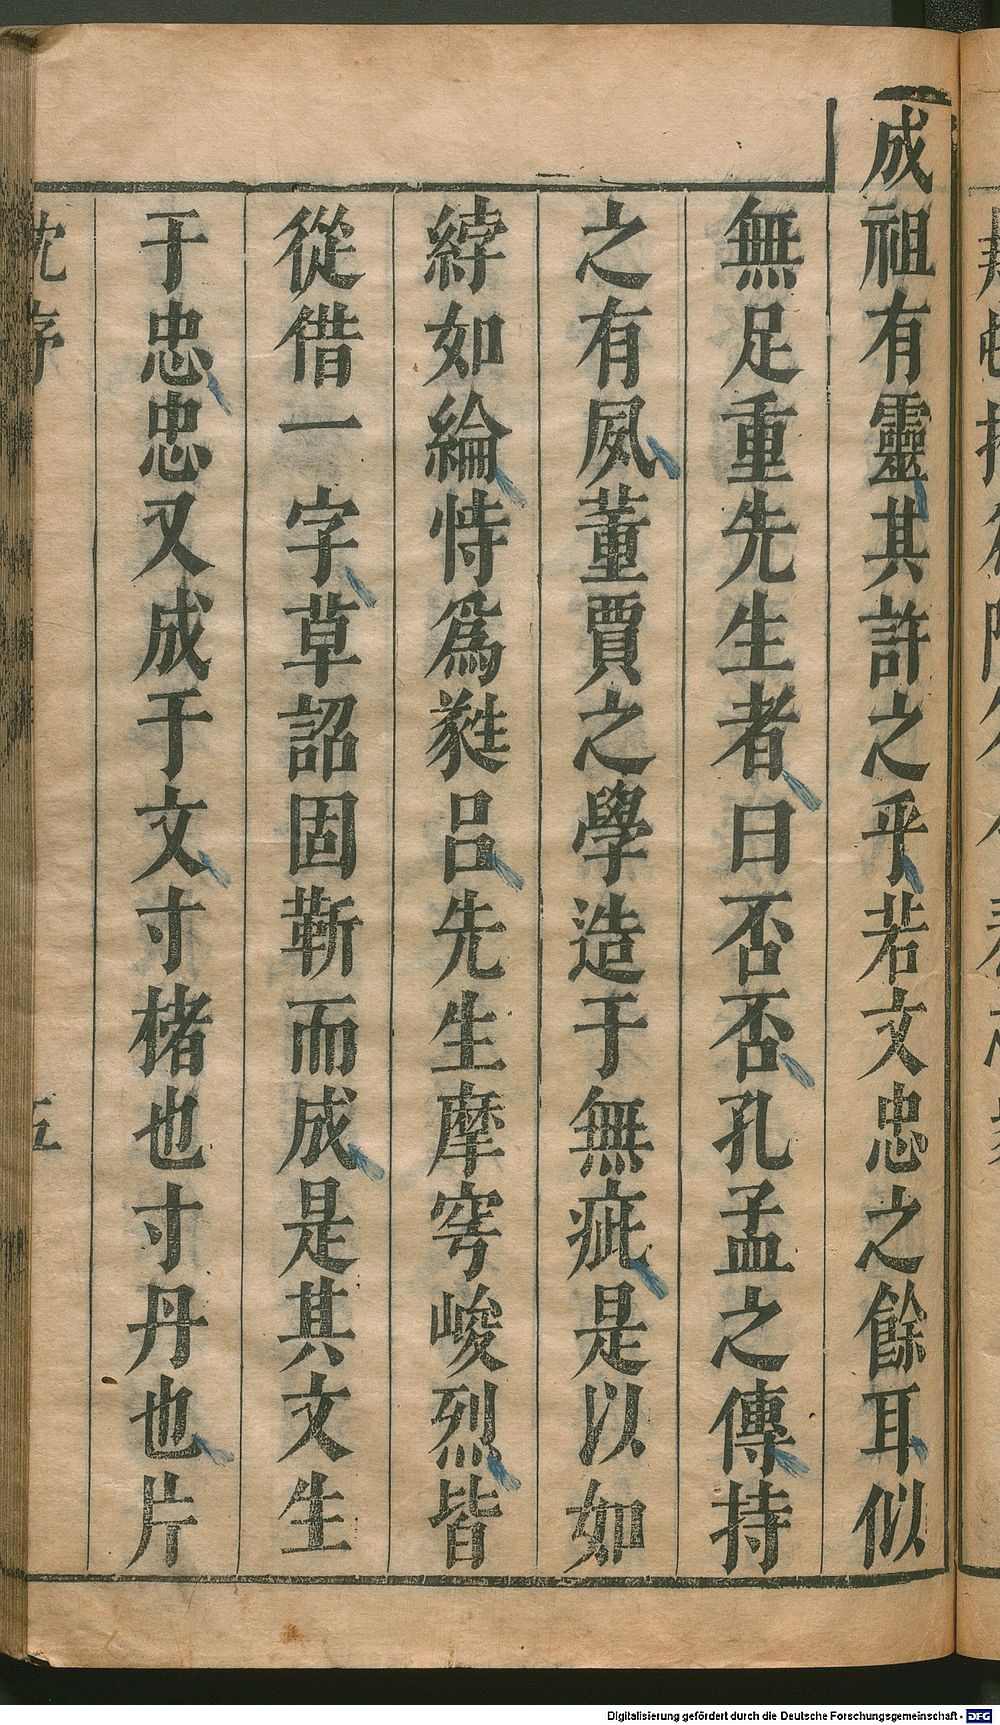 成祖有靈其許之乎若文忠之餘耳似
無足重先生者曰否否孔孟之傳持
之有夙董賈之學造于無疵是以如
綍如綸恃爲蕤呂先生摩穹峻烈皆
從借一字草詔固靳而成是其文生
于忠忠又成于文寸楮也寸丹也片
沈序
五
Digitalisierung gefördert durch die Deutsche Forschungsgemeinschaft - DFG